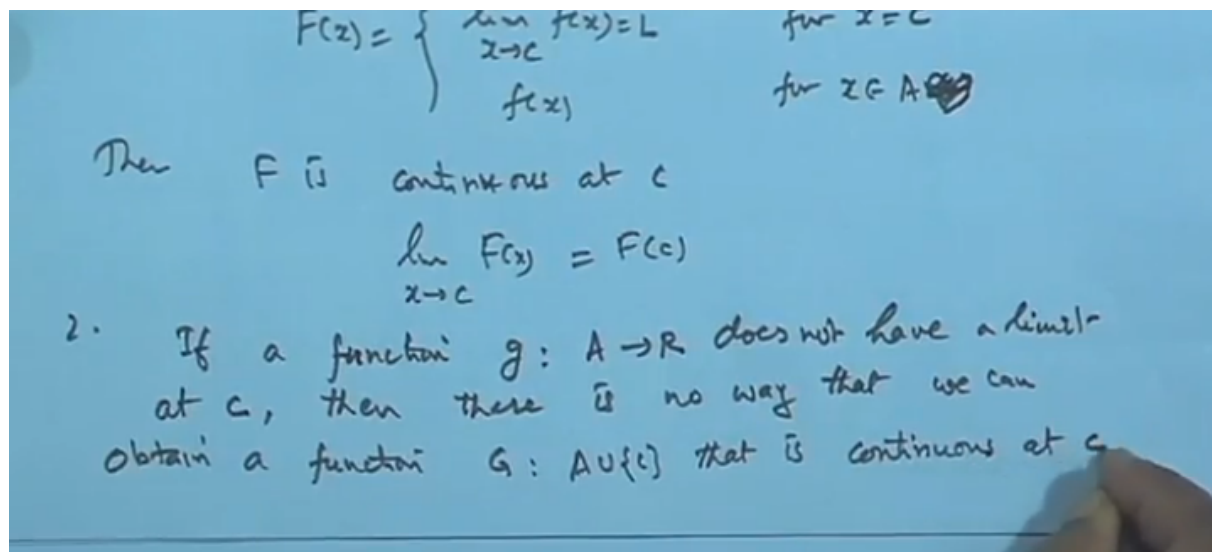 F(x) = { lim f(x) = L for x = c
x→c
f(x) for x ∈ A
Then F is continuous at c
lim F(x) = F(c)
x→c
2. If a function g : A → R does not have a limit
at c, then there is no way that we can
obtain a function G : A∪{c} that is continuous at c